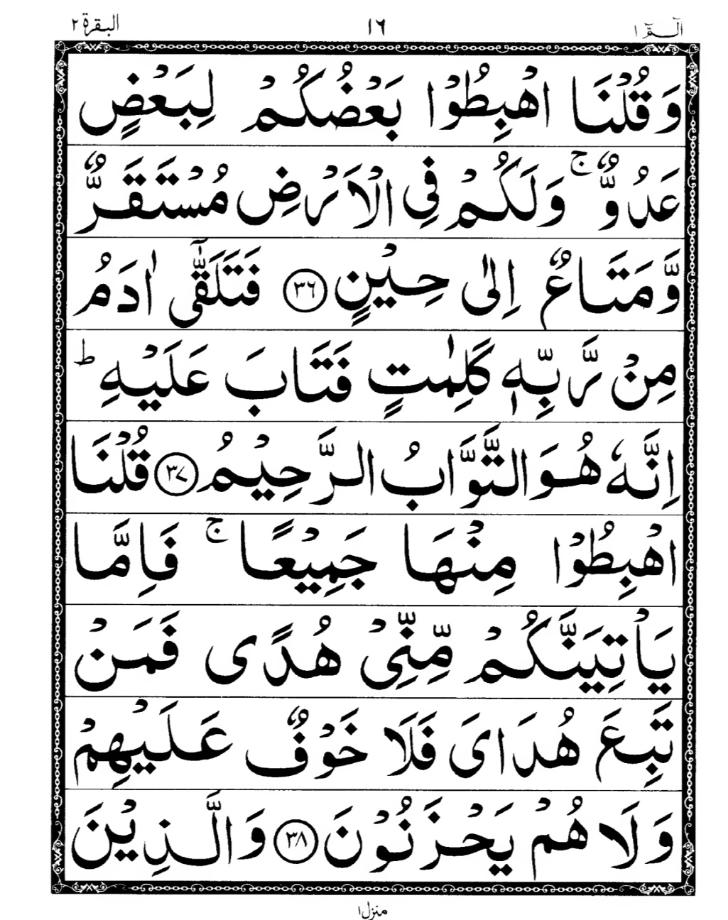 الٓـمّٓ ١ ١٦ البقرة ٢
وَقُلْنَا اهْبِطُوْا بَعْضُكُمْ لِبَعْضٍ
عَدُوٌّ ۚ وَلَكُمْ فِی الْاَرْضِ مُسْتَقَرٌّ
وَّمَتَاعٌ اِلٰی حِیْنٍ ﴿٣٦﴾ فَتَلَقّٰۤی اٰدَمُ
مِنْ رَّبِّهٖ کَلِمٰتٍ فَتَابَ عَلَیْهِ ؕ
اِنَّهٗ هُوَ التَّوَّابُ الرَّحِیْمُ ﴿٣٧﴾ قُلْنَا
اهْبِطُوْا مِنْهَا جَمِیْعًا ۚ فَاِمَّا
یَاْتِیَنَّکُمْ مِّنِّیْ هُدًی فَمَنْ
تَبِعَ هُدَایَ فَلَا خَوْفٌ عَلَیْهِمْ
وَلَا هُمْ یَحْزَنُوْنَ ﴿٣٨﴾ وَالَّذِیْنَ
منزل ١